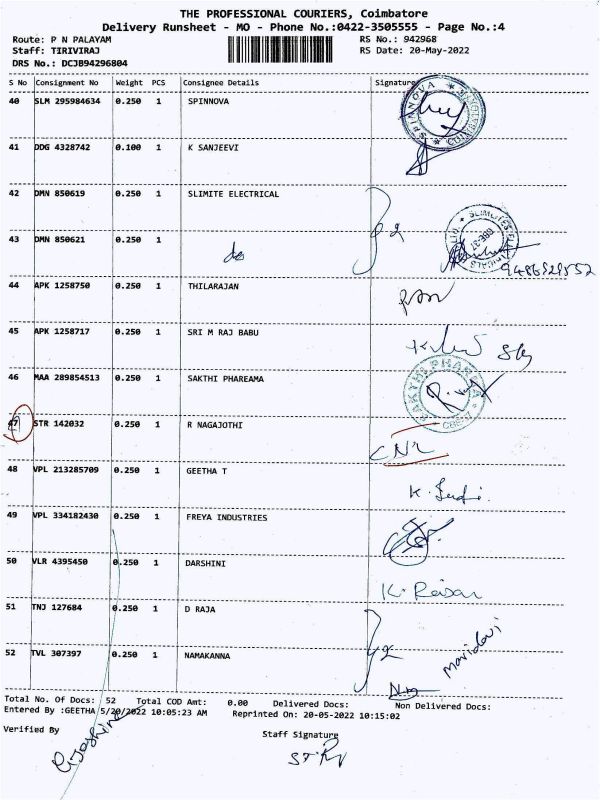 THE PROFESSIONAL COURIERS, Coimbatore
Delivery Runsheet - MO - Phone No.:0422-3505555 - Page No.:4
Route: P N PALAYAM RS No.: 942968
Staff: TIRIVIRAJ RS Date: 20-May-2022
DRS No.: DCJB94296804
S No Consignment No Weight PCS Consignee Details Signature
40 SLM 295984634 0.250 1 SPINNOVA
SPINNOVA
41 DDG 4328742 0.100 1 K SANJEEVI
42 DMN 850619 0.250 1 SLIMITE ELECTRICAL
43 DMN 850621 0.250 1 do
44 APK 1258750 0.250 1 THILARAJAN
45 APK 1258717 0.250 1 SRI M RAJ BABU
46 MAA 289854513 0.250 1 SAKTHI PHAREAMA
SAKTHI PHARMA
47 STR 142032 0.250 1 R NAGAJOTHI
CNR
48 VPL 213285709 0.250 1 GEETHA T
49 VPL 334182430 0.250 1 FREYA INDUSTRIES
50 VLR 4395450 0.250 1 DARSHINI
51 TNJ 127684 0.250 1 D RAJA
52 TVL 307397 0.250 1 NAMAKANNA
Total No. Of Docs: 52 Total COD Amt: 0.00 Delivered Docs: Non Delivered Docs:
Entered By :GEETHA 5/20/2022 10:05:23 AM Reprinted On: 20-05-2022 10:15:02
Verified By Staff Signature